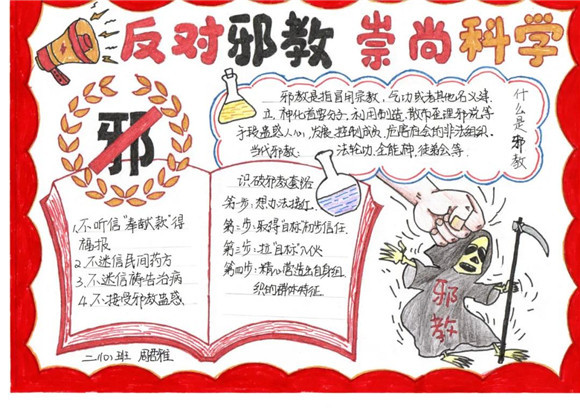 反对邪教 崇尚科学
邪
邪教是指冒用宗教、气功或者其他名义建
立,神化首要分子,利用制造、散布歪理邪说等
手段蛊惑人心,发展、控制成员,危害社会的非法组织。
当代邪教: 法轮功、全能神、徒弟会等.
什么是邪教
1.不听信“奉献款”得
福报
2.不迷信民间药方
3.不迷信祷告治病
4.不接受邪教蛊惑
识破邪教套路
第一步:想办法接近.
第二步:取得目标初步信任.
第三步:拉“目标”入伙
第四步:精心营造出自身组
织的群体特征.
邪教
二(10)班